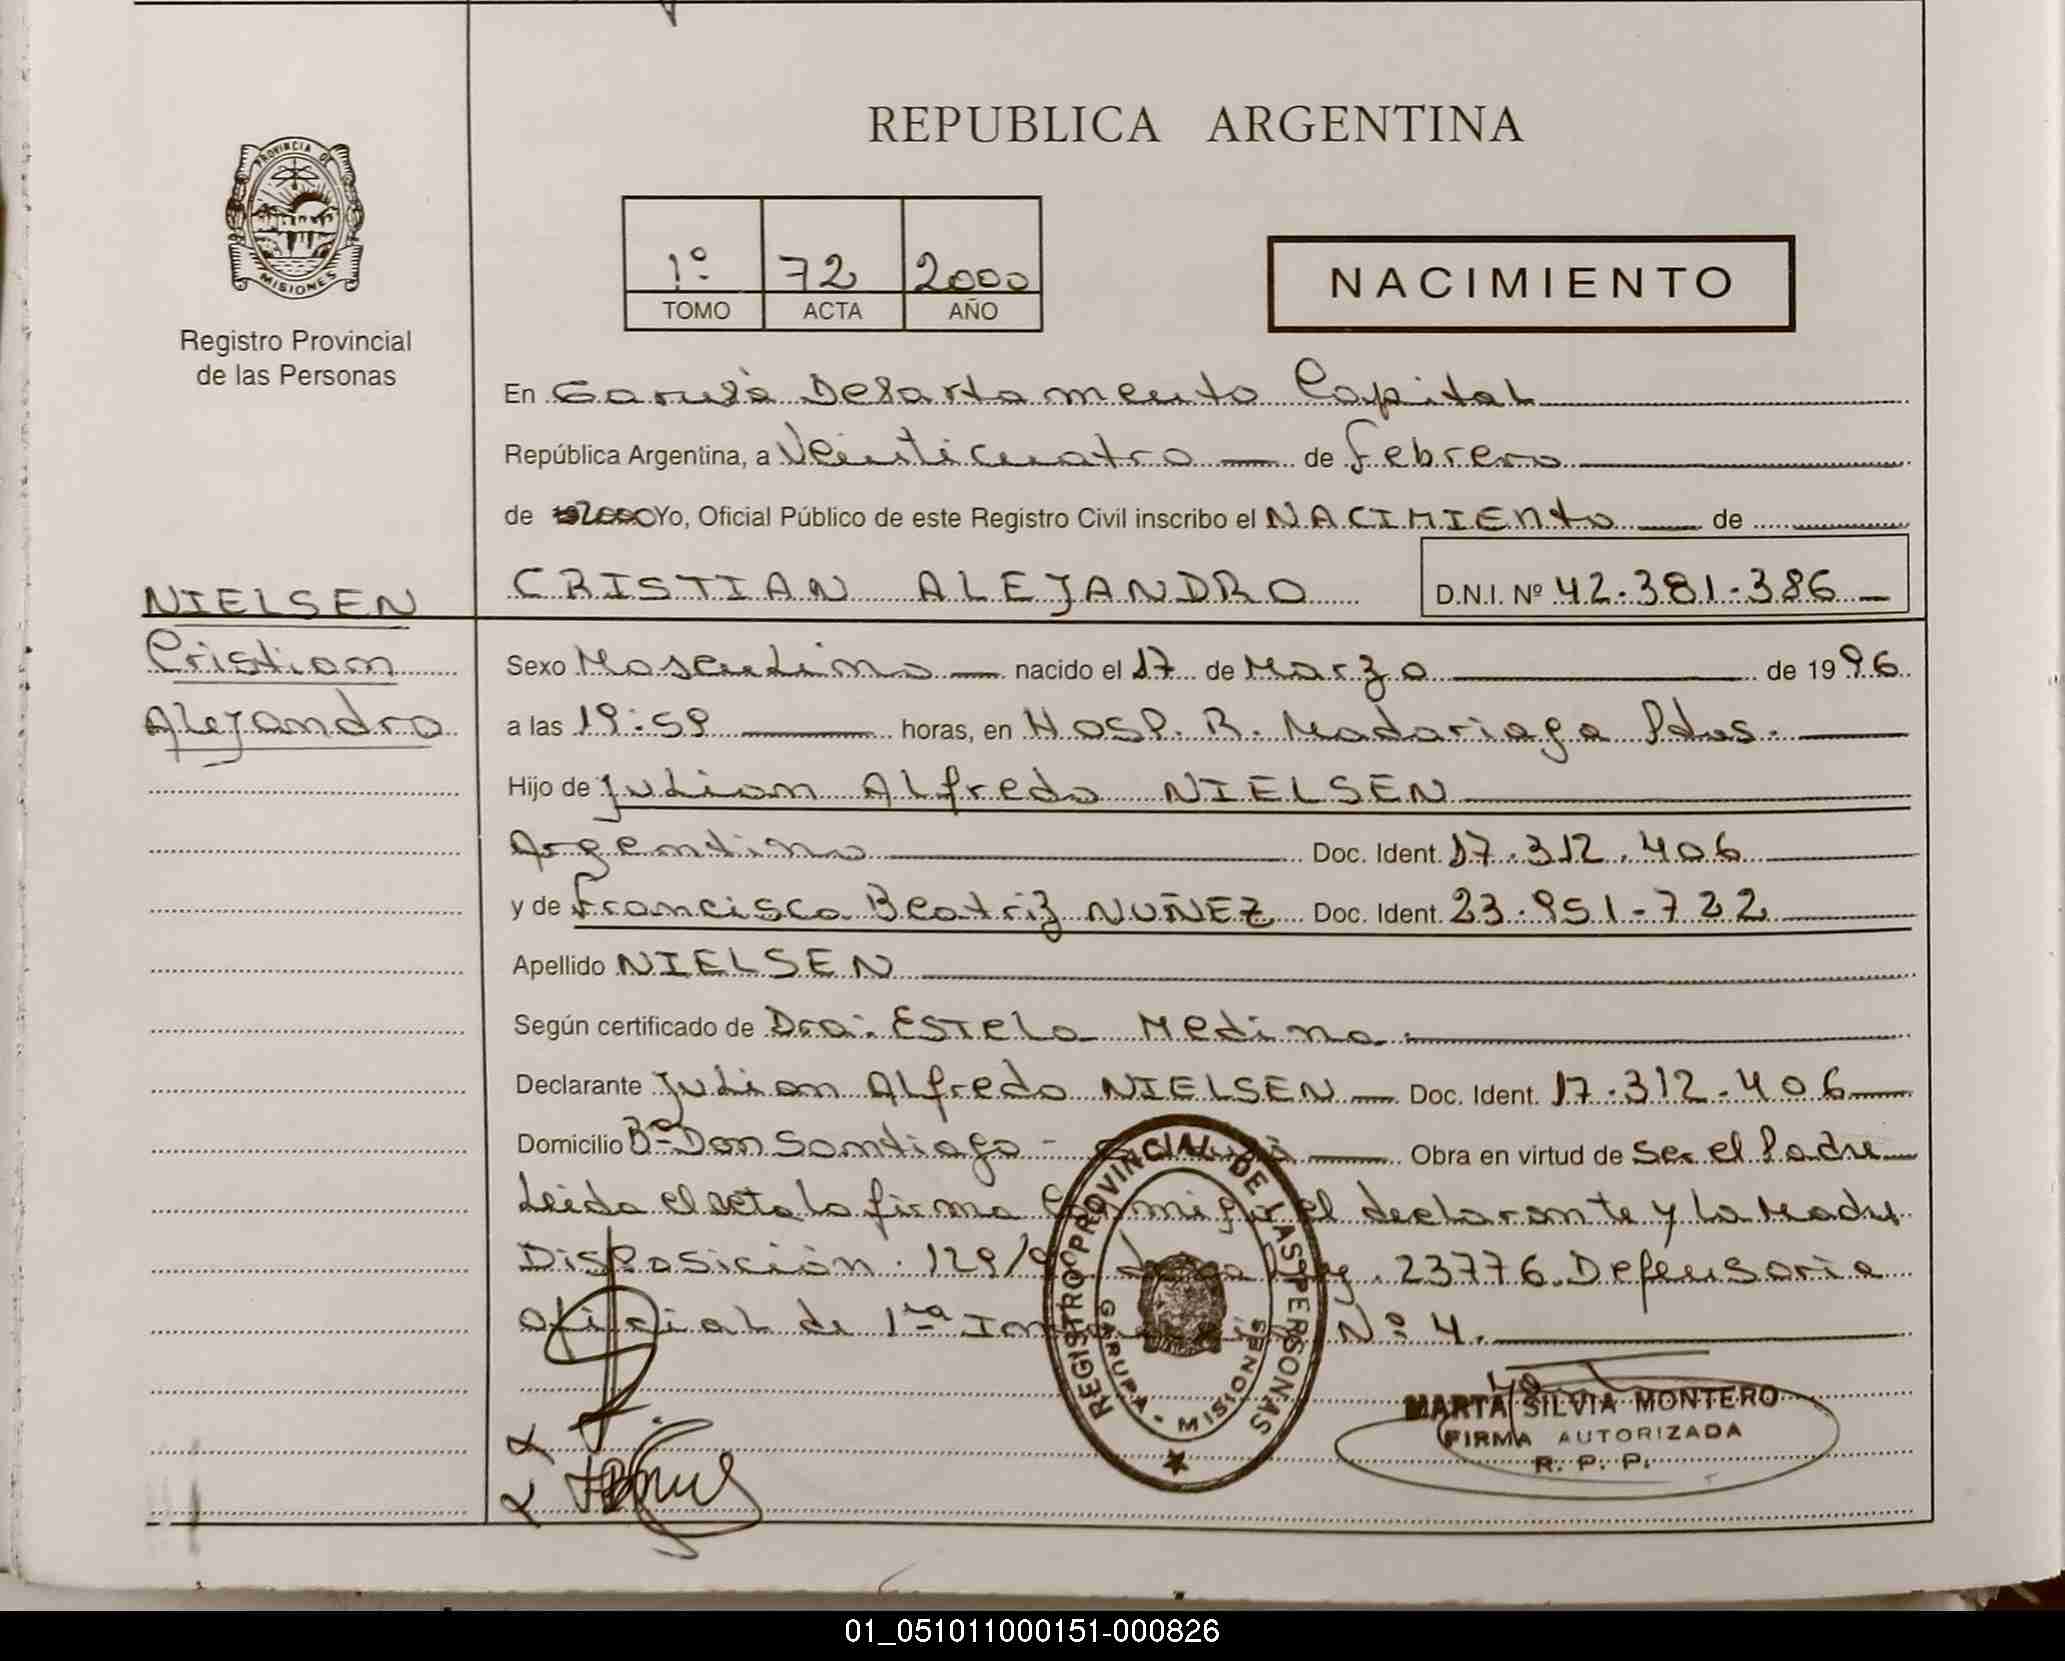 REPUBLICA ARGENTINA
PROVINCIA DE
MISIONES
Registro Provincial
de las Personas
1º 72 2000
TOMO ACTA AÑO
NACIMIENTO
En Garupá Departamento Capital
República Argentina, a Veinticuatro de Febrero
de 2000 Yo, Oficial Público de este Registro Civil inscribo el NACIMIENTO de
CRISTIAN ALEJANDRO D.N.I. Nº 42.381.386
NIELSEN
Cristian
Alejandro
Sexo Masculino nacido el 17 de Marzo de 1996
a las 19:59 horas, en Hosp. R. Madariaga Pdas.
Hijo de Julian Alfredo NIELSEN
Argentino Doc. Ident. 17.312.406
y de Francisca Beatriz NUÑEZ Doc. Ident. 23.951-722
Apellido NIELSEN
Según certificado de Dra. Estela Medina
Declarante Julian Alfredo NIELSEN Doc. Ident. 17.312.406
Domicilio Bº Don Santiago - Garupá Obra en virtud de Ser el Padre
Leida el acta la firma Conmigo el declarante y la Madre
Disposición 129/ Ley 23776. Defensoria
Oficial de 1ra Nº 4.
REGISTRO PROVINCIAL DE LAS PERSONAS
GARUPA - MISIONES
MARTA SILVIA MONTERO
FIRMA AUTORIZADA
R. P. P.
01_051011000151-000826